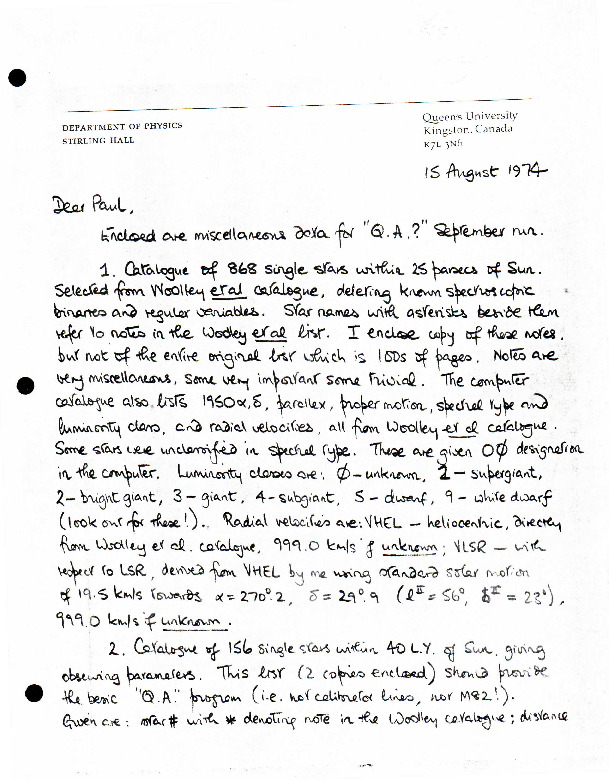 DEPARTMENT OF PHYSICS
STIRLING HALL
Queen's University
Kingston, Canada
K7L 3N6
15 August 1974
Dear Paul,
Enclosed are miscellaneous data for "Q.A.?" September run.
1. Catalogue of 868 single stars within 25 parsecs of Sun.
Selected from Woolley et al catalogue, deleting known spectroscopic
binaries and regular variables. Star names with asterisks beside them
refer to notes in the Woolley et al list. I enclose copy of these notes,
but not of the entire original list which is 100s of pages. Notes are
very miscellaneous, some very important some trivial. The computer
catalogue also lists 1950 α, δ, parallax, proper motion, spectral type and
luminosity class, and radial velocities, all from Woolley et al catalogue.
Some stars were unclassified in spectral type. These are given OØ designation
in the computer. Luminosity classes are: Ø-unknown, 1-supergiant,
2-bright giant, 3-giant, 4-subgiant, 5-dwarf, 9-white dwarf
(look out for these!). Radial velocities are: VHEL - heliocentric, directly
from Woolley et al. catalogue, 999.0 km/s if unknown; VLSR - with
respect to LSR, derived from VHEL by me using standard solar motion
of 19.5 km/s towards α = 270°.2, δ = 29°.9 (lᴵᴵ = 56°, bᴵᴵ = 23°),
999.0 km/s if unknown.
2. Catalogue of 156 single stars within 40 L.Y. of Sun, giving
observing parameters. This list (2 copies enclosed) should provide
the basic "Q.A." program (i.e. not calibrator lines, nor M82!).
Given are: star # with * denoting note in the Woolley catalogue; distance